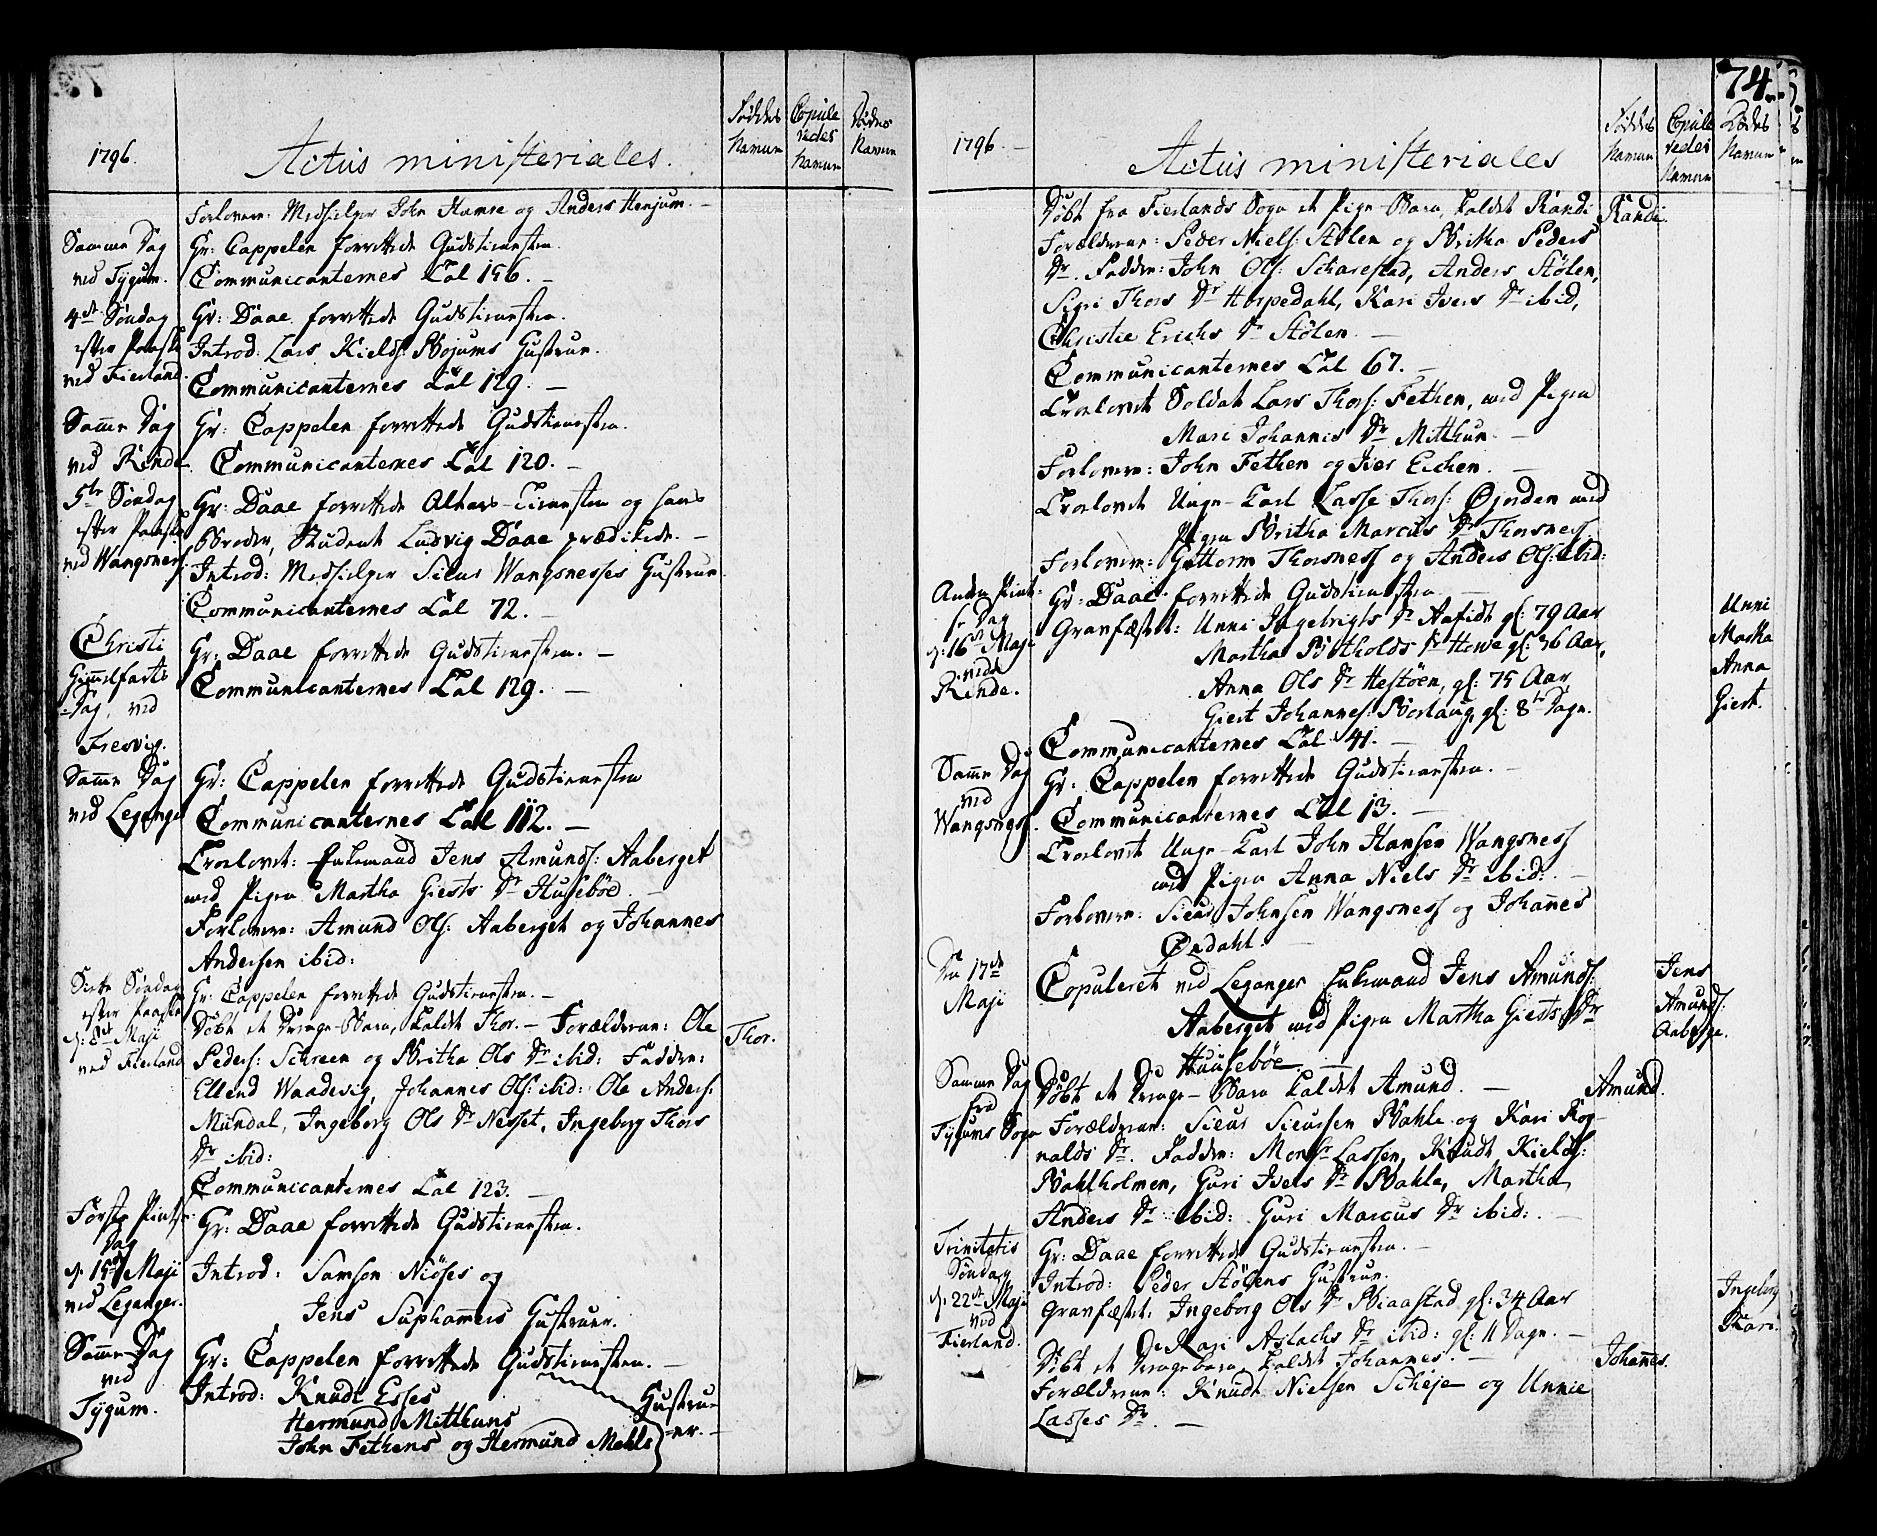 1796.
Actus ministeriales.
Føddes Navne
Copule redes Navne
Dødes Navne
Forlovere: Medhielper John Hamre og Anders Henjum. -
Samme Dag ved Tygum.
Hr: Cappelen forrettede Gudstienesten.
Communicanternes Tal 156. -
4de Søndag efter Paaske ved Fierland.
Hr: Daae forrettede Gudstienesten.
Introd: Lars Kields: Bojums Hustrue.
Communicanternes Tal 129. -
Samme Dag ved Rinde
Hr: Cappelen forrettede Gudstienesten.
Communicanternes Tal 120. -
5te Søndag efter Paaske ved Wangsness
Hr: Daae forrettede Alters-Tienesten og hans
Broder, Student Ludvig Daae prædikede. -
Introd: Medhielper Sieur Wangsnesses Hustrue
Communicanternes Tal 72. -
Christi Himmelfarts Dag, ved Fresvig.
Hr: Daae forrettede Gudstienesten. -
Communicanternes Tal 129. -
Samme Dag ved Leganger
Hr: Cappelen forrettede Gudstienesten
Communicanternes Tal 112. -
Troelovet: Enkemand Jens Amunds: Aaberget
med Pigen Martha Giests Dr Husebøe. -
Forlovere: Amund Ols: Aaberget og Johannes
Andersen ibid:
Siette Søndag efter Paaske d: 8de Maji ved Fierland
Hr: Cappelen forrettede Gudstienesten. -
Døbt et Drenge-Barn, kaldet Thor. - Forældrene: Ole
Thor.
Peders: Schreen og Britha Ols Dr ibid: Faddere:
Ellend Waadevig, Johannes Ols: ibid: Ole Anders:
Mundal, Ingeborg Ols Dr Nesset, Ingeborg Thors
Dr ibid:
Communicanternes Tal 123. -
Første Pintse Dag d: 15de Maji ved Leganger.
Hr: Daae forrettede Gudstienesten.
Introd: Samson Niøses og
Jens Suphammers Hustruer.
Samme Dag ved Tygum.
Hr: Cappelen forrettede Gudstienesten. -
Introd: Knudt Esses
Hermund Mitthuns
John Fethens og Hermund Mehls
Hustruer. -
74.
1796. -
Actus ministeriales
Føddes Navne
Copule redes Navne
Dødes Navne
Døbt fra Fierlands Sogn et Pige-Barn, kaldet Randi
Randi.
Forældrene: Peder Niels: Stølen og Britha Peders
Dr. Faddere: John Ols: Scharestad, Anders Stølen,
Sigri Thors Dr Horpedahl, Kari Ivers Dr ibid,
Christie Erichs Dr Stølen. -
Communicanternes Tal 67. -
Troelovet Soldat Lars Thors: Fethen, med Pigen
Mari Johannis Dr Mitthun. -
Forlovere: John Fethen og Iver Eichen. -
Troelovet Unge-Karl Lasse Thors: Øjorden med
Pigen Britha Marcus Dr Thorsness.
Forlovere: Guttorm Thorsness og Anders Ols: ibid:
Anden Pintse Dag d: 16de Maji ved Rinde.
Hr: Daae forrettede Gudstienesten. -
Gravfæstet: Unni Ingebrigts Dr gl: 79 Aar
Unni
Martha Botholds Dr Howe gl: 36 Aar,
Martha
Anna Ols Dr Hestøen, gl: 75 Aar
Anna
Giest Johannes: Borlaug, gl: 8te Dage.
Giest.
Communicanternes Tal 41. -
Samme Dag ved Wangsness.
Hr: Cappelen forrettede Gudstienesten. -
Communicanternes Tal 13. -
Troelovet Unge-Karl John Hansen Wangsness
med Pigen Anna Niels Dr ibid: -
Forlovere: Sieur Johnsen Wangsness og Johannes
Øndahl. -
Den 17de Maji
Copuleret ved Leganger Enkemand Jens Amunds:
Aaberget med Pigen Martha Giests Dr
Huusebøe. -
Jens Amunds: Aaberge.
Samme Dag fra Tygums Sogn
Døbt et Drenge-Barn kaldet Amund. -
Amund.
Forældrene: Sieur Sieursen Bahle og Kari Rog-
nalds Dr. Faddere: Mons Lassen, Knudt Kields:
Bahlholmen, Guri Ivers Dr Bahle, Martha
Anders Dr ibid: Guri Marcus Dr ibid: -
Trinitatis Søndag d: 22de Maji ved Fierland.
Hr: Daae forrettede Gudstienesten. -
Introd: Peder Stølens Hustrue.
Gravfæstet: Ingeborg Ols Dr gl: 34 Aar
Ingeborg
Kari Aslachs Dr ibid: gl: 11 Dage. -
Kari.
Døbt et Drengebarn, kaldet Johannes. -
Johannes.
Forældrene: Knudt Nielsen Scheje og Unnie
Lasses Dr. -